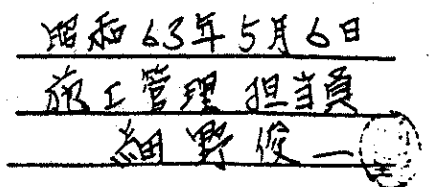 昭和63年5月6日
施工管理担当員
細野俊一